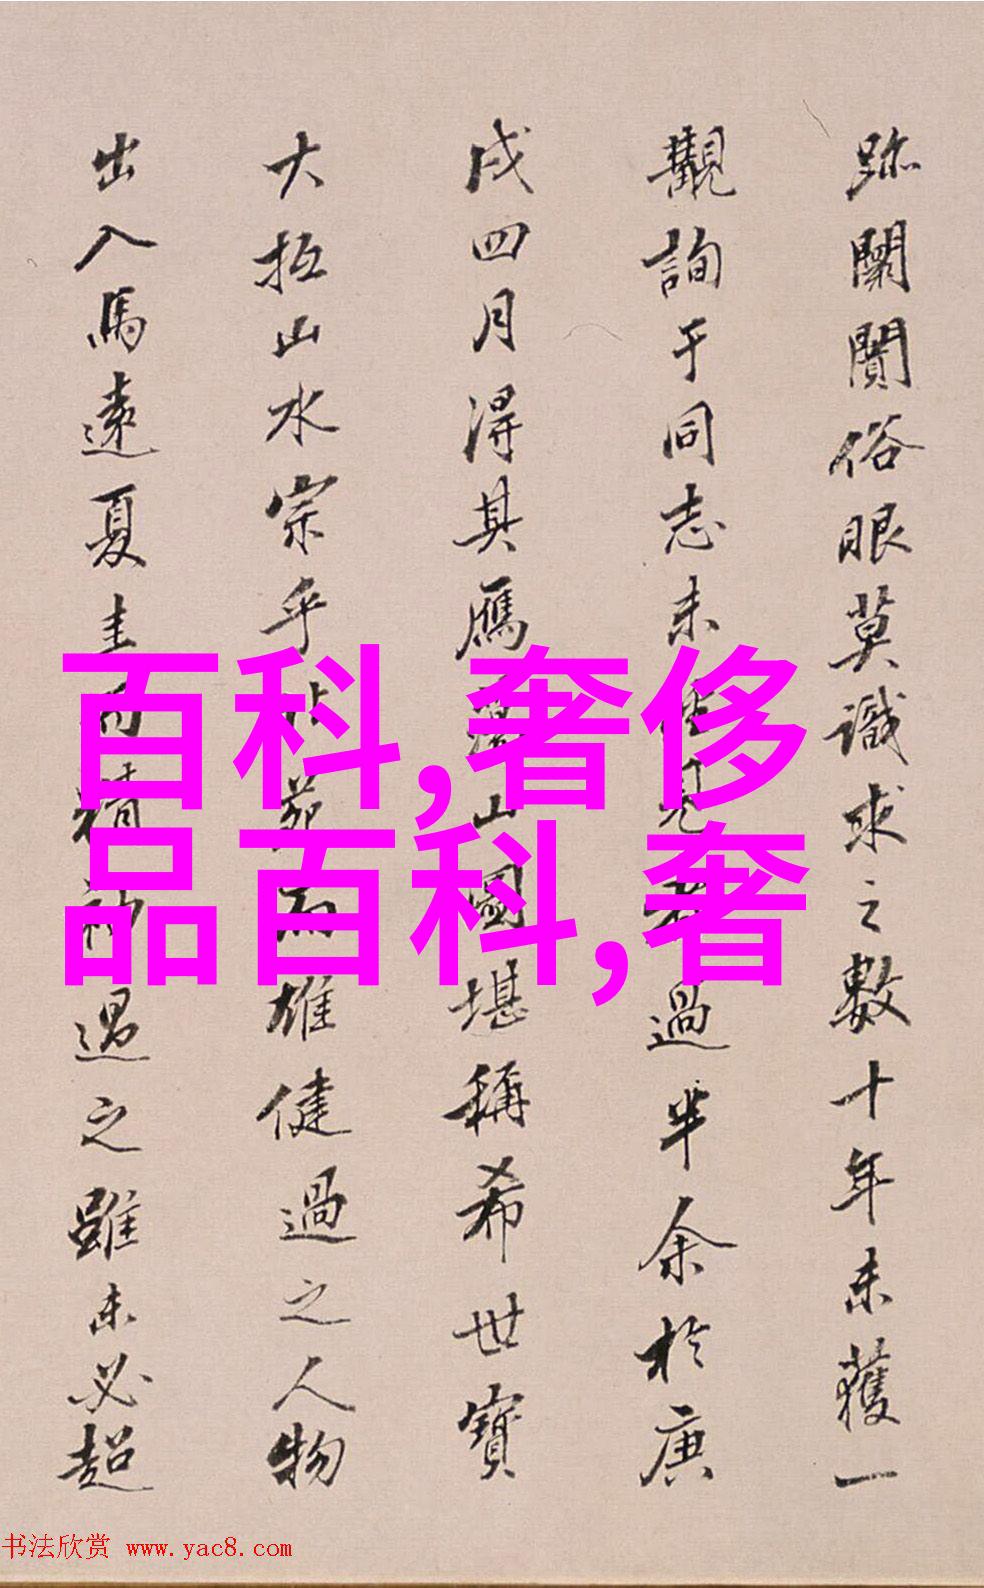 跡闤闠俗眼莫識求之數十年未獲一
觀詢于同志未 見 過半余於庚
戌四月得其鴈 山圖堪稱希世寶
大抵山水宗乎 苑而雄健過之人物
出入馬遠夏圭 精神過之雖未必超
百科,奢侈
品百科,奢
书法欣赏 www.yac8.com